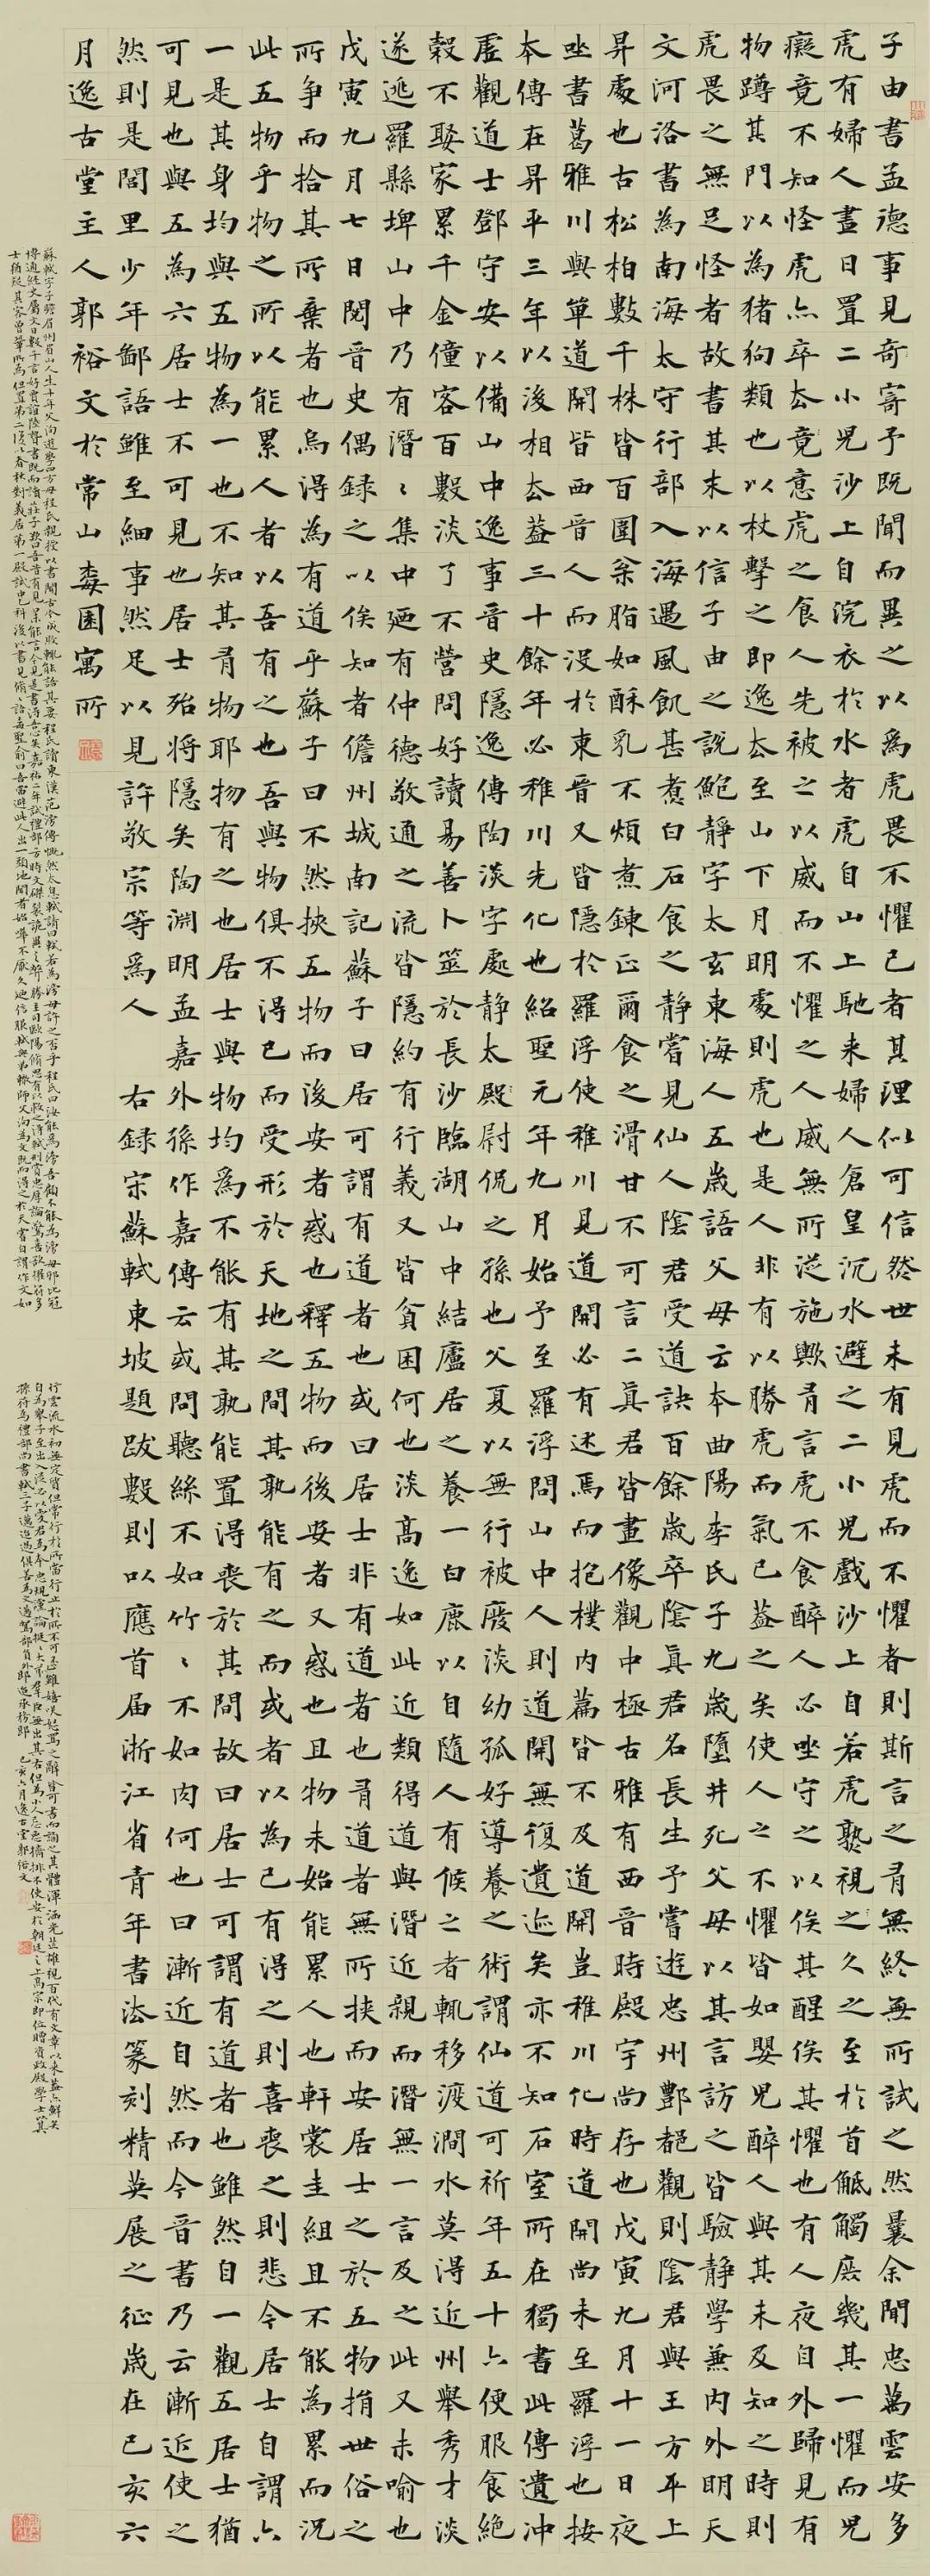 子由書孟德事見奇寄予既聞而異之以為虎畏不懼己者其理似可信然世未有見虎而不懼者則斯言之有無終無所試之然曩余聞忠萬雲安多
虎有婦人晝日置二小兒沙上自浣衣於水者虎自山上馳来婦人倉皇沉水避之二小兒戲沙上自若虎熟視之久之至於首觝觸庶幾其一懼而兒
癡竟不知怪虎亦卒去竟意虎之食人先被之以威而不懼之人威無所從施歟有言虎不食醉人必坐守之以俟其醒俟其懼也有人夜自外歸見有
物蹲其門以為猪狗類也以杖擊之即逸去至山下月明處則虎也是人非有以勝虎而氣已蓋之矣使人之不懼皆如嬰兒醉人與其未及知之時則
虎畏之無足怪者故書其末以信子由之説鮑靜字太玄東海人五歲語父母云本曲陽李氏子九歲墮井死父母以其言訪之皆驗靜學兼内外明天
文河洛書為南海太守行部入海遇風飢甚煮白石食之靜嘗見仙人陰君受道訣百餘歲卒陰真君名長生予嘗遊忠州酆都觀則陰君與王方平上
昇處也古松柏數千株皆百圍松脂如酥乳不煩煮鍊正爾食之滑甘不可言二真君皆畫像觀中極古雅有西晉時殿宇尚存也戊寅九月十一日夜
坐書葛雅川與單道開皆西晉人而沒於東晉又皆隱於羅浮使稚川見道開必有述焉而抱樸内篇皆不及道開豈稚川化時道開尚未至羅浮也按
本傳在昇平三年以後相去蓋三十餘年必稚川先化也紹聖元年九月始予至羅浮問山中人則道開無復遺迹矣亦不知石室所在獨書此傳遺冲
虛觀道士鄧守安以備山中逸事晉史隱逸傳陶淡字處靜太殿尉侃之孫也父夏以無行被廢淡幼孤好導養之術謂仙道可祈年五十六便服食絶
穀不娶家累千金僮客百數淡了不營問好讀易善卜筮於長沙臨湖山中結廬居之養一白鹿以自隨人有候之者輒移渡澗水莫得近州舉秀才淡
遂逃羅縣埤山中乃有潛〻集中廼有仲德敬通之流皆隱約有行義又皆貧困何也淡高逸如此近類得道與潛近親而潛無一言及之此又未喻也
戊寅九月七日閲晉史偶録之以俟知者儋州城南記蘇子曰居可謂有道者也或曰居士非有道者也有道者無所挾而安居士之於五物捐世俗之
所争而拾其所棄者也烏得為有道乎蘇子曰不然挾五物而後安者惑也釋五物而後安者又惑也且物未始能累人也軒裳圭組且不能為累而況
此五物乎物之所以能累人者以吾有之也吾與物俱不得已而受形於天地之間其孰能有之而或者以為己有得之則喜喪之則悲今居士自謂六
一是其身均與五物為一也不知其有物耶物有之也居士與物均為不能有其孰能置得喪於其間故曰居士可謂有道者也雖然自一觀五居士猶
可見也與五為六居士不可見也居士殆將隱矣陶淵明孟嘉外孫作嘉傳云或問聽絲不如竹〻不如肉何也曰漸近自然而今晉書乃云漸近使之
然則是閭里少年鄙語雖至細事然足以見許敬宗等為人 右録宋蘇軾東坡題跋數則以應首届浙江省青年書法篆刻精英展之征歲在己亥六
月逸古堂主人郭裕文於常山園寓所
蘇軾字子瞻眉州眉山人生十年父洵遊學四方母程氏親授以書聞古今成敗輒能語其要程氏讀東漢范滂傳慨然太息軾請曰軾若為滂母許之否乎程氏曰汝能為滂吾顧不能為滂母邪比冠
博通經史屬文日數千言好賈誼陸贄書既而讀莊子
行雲流水初無定質但常行於所當行止於所不可不止雖嬉笑怒罵之辭皆可書而誦之其體渾涵光芒雄視百代有文章以來蓋亦鮮矣